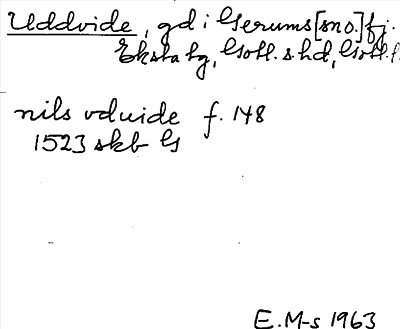 Uddvide, gd i Gerums [sno.] fj.
Eksta tg, Gotl. s hd, Gotl. l.
nils vduide f. 148
1523 skb G
E.M-s 1963